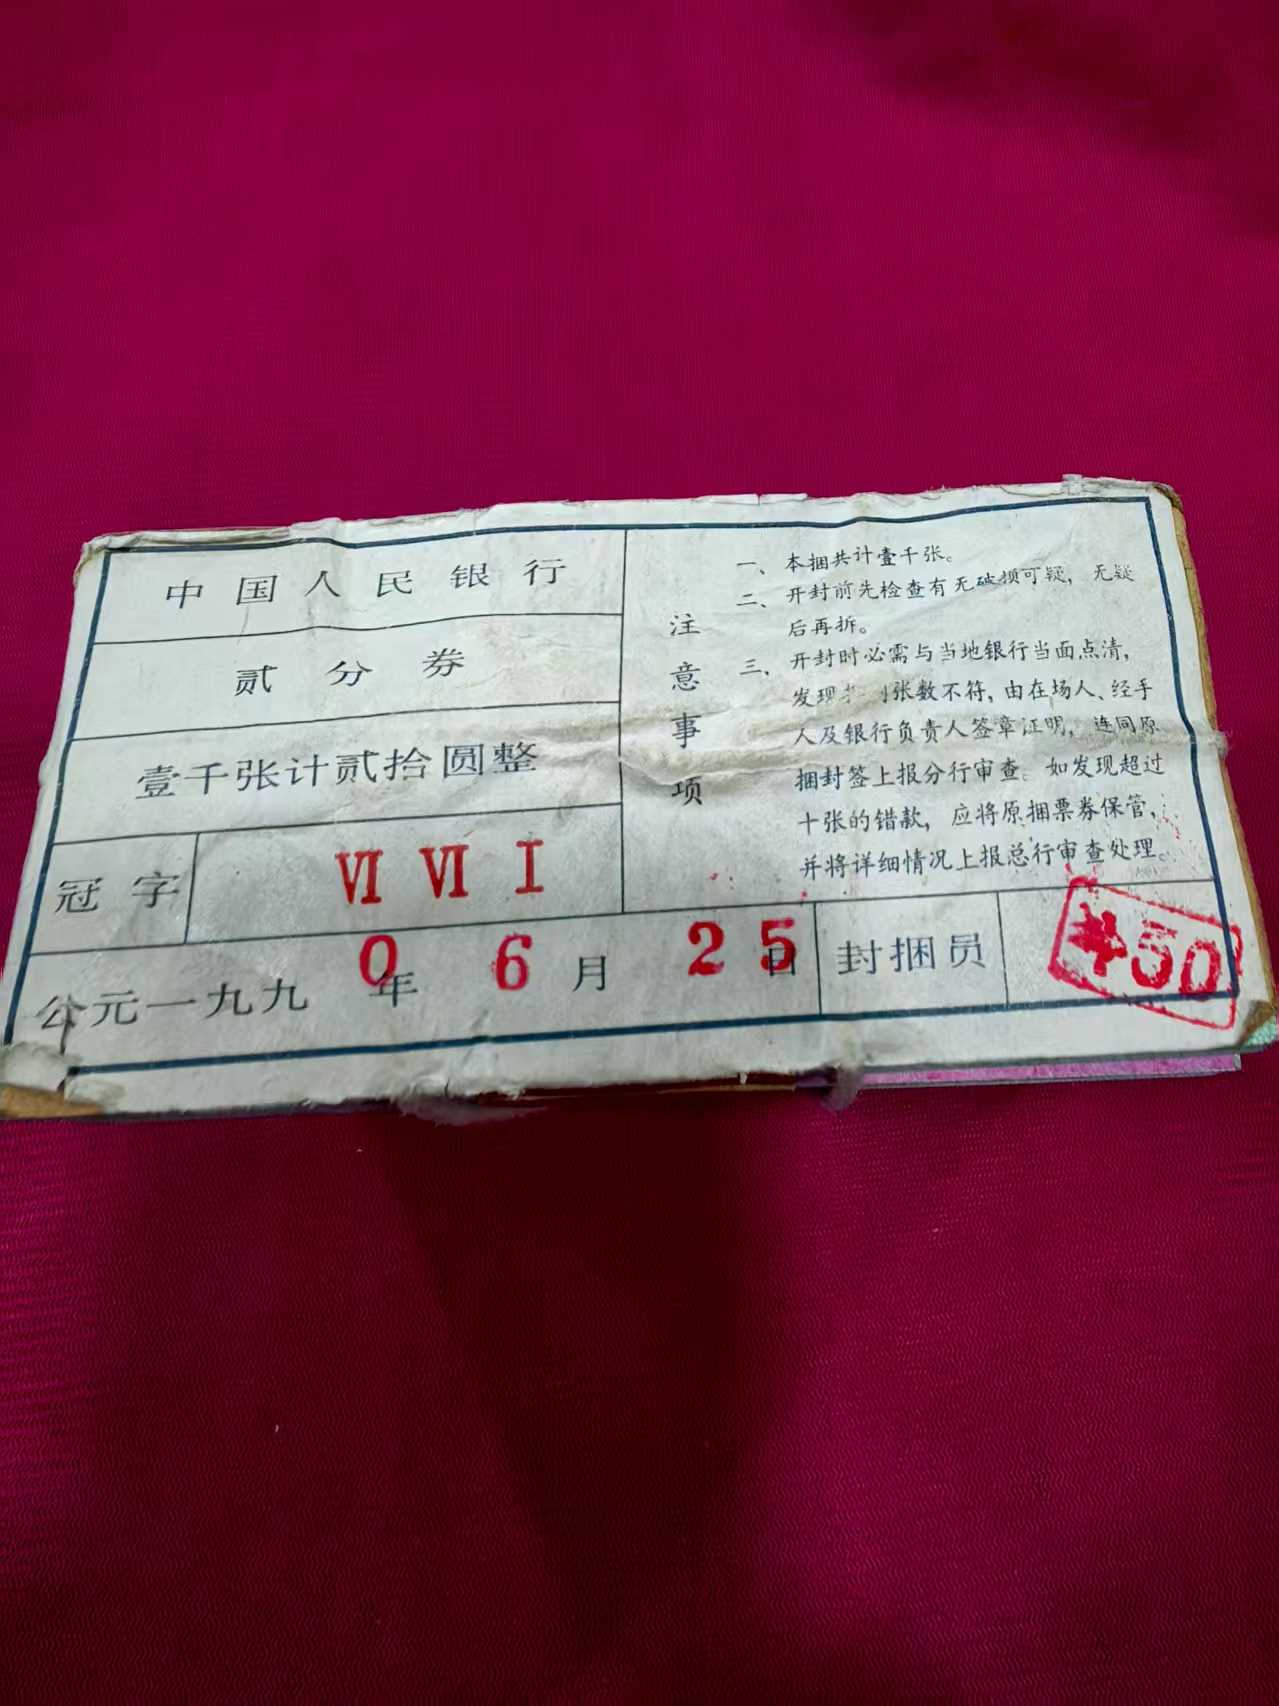 中国人民银行
贰分券
壹千张计贰拾圆整
冠字 Ⅵ Ⅶ Ⅰ
公元一九九0年6月25日
注意事项
一、本捆共计壹千张。
二、开封前先检查有无破损可疑，无疑
后再拆。
三、开封时必需与当地银行当面点清，
发现 张数不符，由在场人、经手
人及银行负责人签章证明，连同原
捆封签上报分行审查。如发现超过
十张的错款，应将原捆票券保管，
并将详细情况上报总行审查处理。
封捆员
50